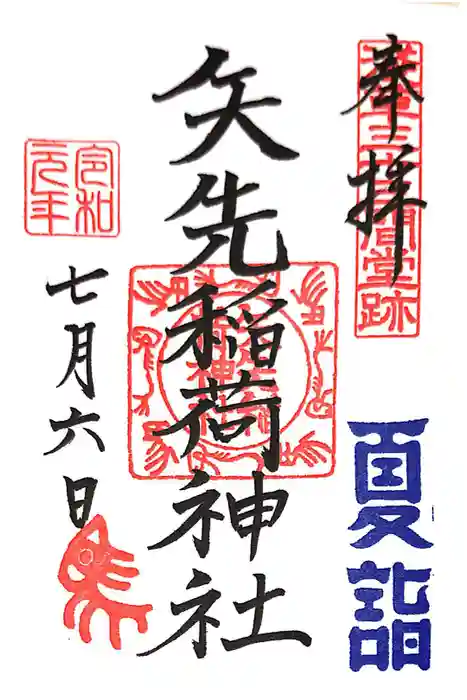 奉拝
浅草三十三間堂跡
夏詣
矢先稲荷神社
令和元年
七月六日